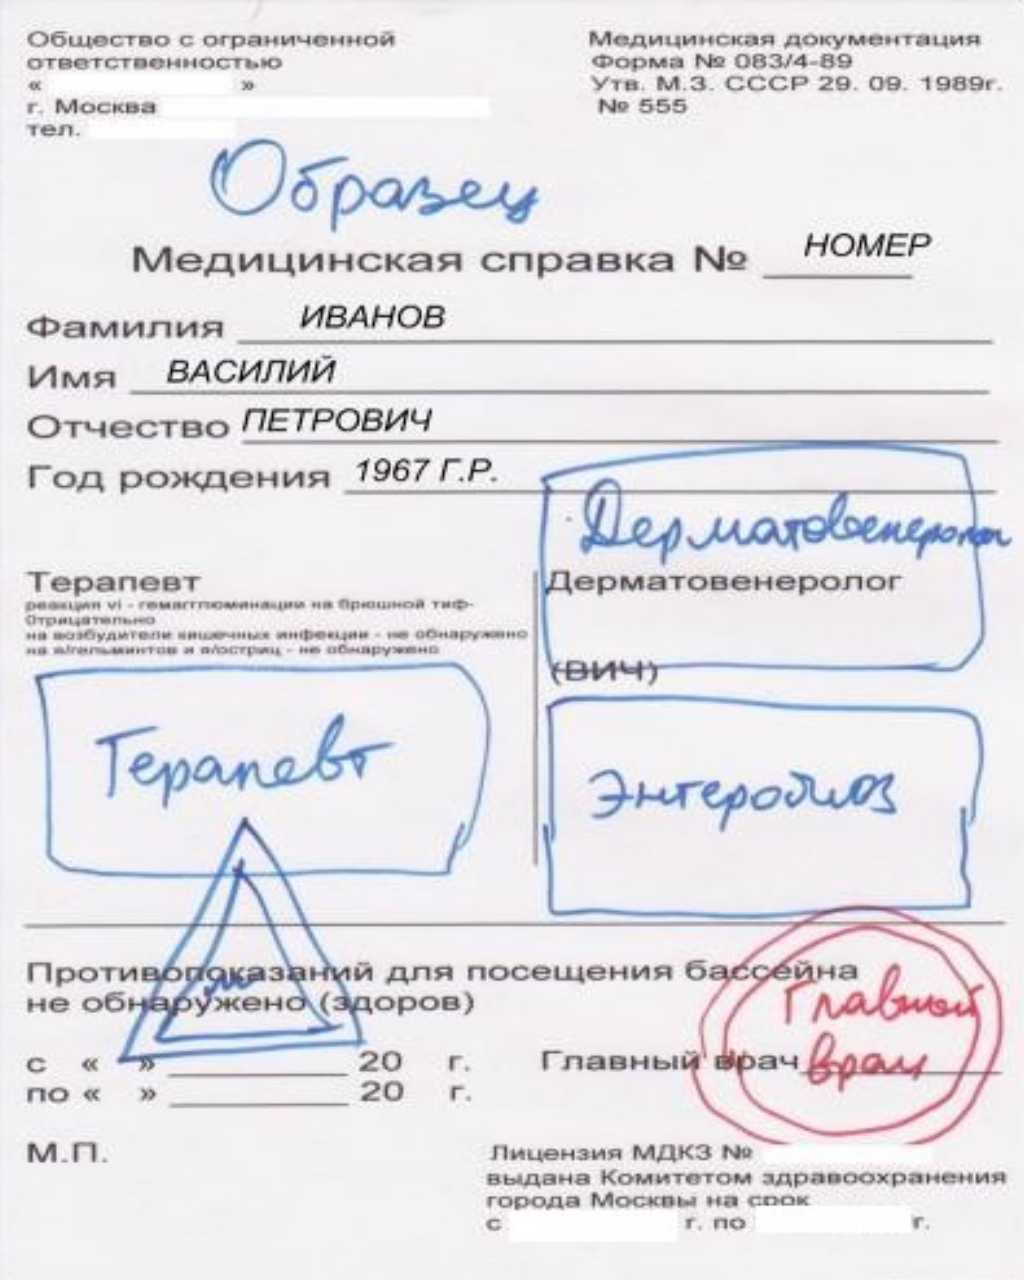 Общество с ограниченной
ответственностью
« »
г. Москва
тел.
Медицинская документация
Форма № 083/4-89
Утв. М.З. СССР 29. 09. 1989г.
№ 555
Образец
Медицинская справка № НОМЕР
Фамилия ИВАНОВ
Имя ВАСИЛИЙ
Отчество ПЕТРОВИЧ
Год рождения 1967 Г.Р.
Терапевт
реакция vi - гемагглюминации на брюшной тиф-
0трицательно
на возбудители кишечных инфекции - не обнаружено
на я/гельминтов и я/остриц - не обнаружено
Терапевт
Дерматовенеролог
Дерматовенеролог
(ВИЧ)
Энтеробиоз
Противопоказаний для посещения бассейна
не обнаружено (здоров)
с « » 20 г.
по « » 20 г.
Главный врач
Главный
врач
М.П.
Лицензия МДКЗ №
выдана Комитетом здравоохранения
города Москвы на срок
с г. по г.